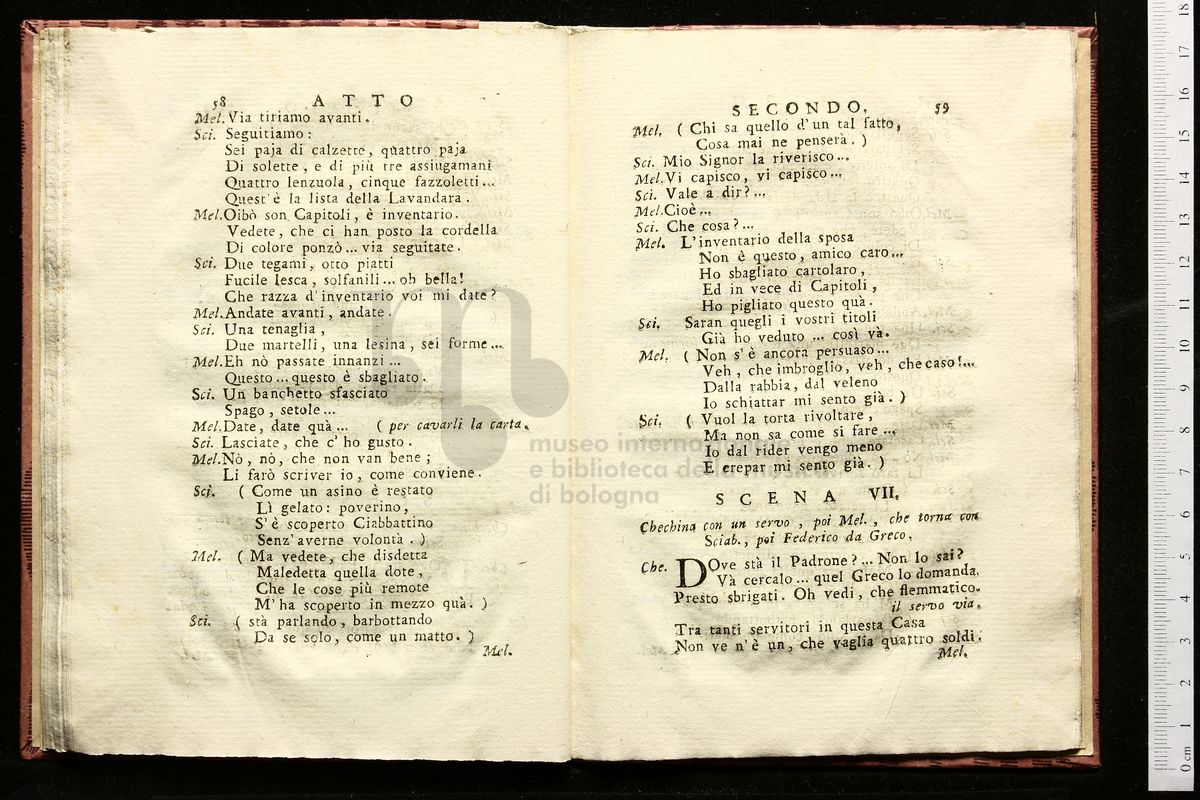 58 ATTO
Mel. Via tiriamo avanti.
Sci. Seguitiamo:
Sei paja di calzette, quattro paja
Di solette, e di più tre assiugamani
Quattro lenzuola, cinque fazzoletti...
Quest'è la lista della Lavandara.
Mel. Oibò son Capitoli, è inventario.
Vedete, che ci han posto la cordella
Di colore ponzò... via seguitate.
Sci. Due tegami, otto piatti
Fucile lesca, solfanili... oh bella!
Che razza d'inventario voi mi date?
Mel. Andate avanti, andate.
Sci. Una tenaglia,
Due martelli, una lesina, sei forme...
Mel. Eh nò passate innanzi...
Questo... questo è sbagliato.
Sci. Un banchetto sfasciato
Spago, setole...
Mel. Date, date quà... (per cavarli la carta.
Sci. Lasciate, che c'ho gusto.
Mel. Nò, nò, che non van bene;
Li farò scriver io, come conviene.
Sci. (Come un asino è restato
Lì gelato: poverino,
S'è scoperto Ciabbattino
Senz'averne volontà.)
Mel. (Ma vedete, che disdetta
Maledetta quella dote,
Che le cose più remote
M'ha scoperto in mezzo quà.)
Sci. (stà parlando, barbottando
Da se solo, come un matto.)
Mel.
SECONDO. 59
Mel. (Chi sa quello d'un tal fatto,
Cosa mai ne penserà.)
Sci. Mio Signor la riverisco...
Mel. Vi capisco, vi capisco...
Sci. Vale a dir?...
Mel. Cioè...
Sci. Che cosa?...
Mel. L'inventario della sposa
Non è questo, amico caro...
Ho sbagliato cartolaro,
Ed in vece di Capitoli,
Ho pigliato questo quà.
Sci. Saran quegli i vostri titoli
Già ho veduto... così và.
Mel. (Non s'è ancora persuaso...
Veh, che imbroglio, veh, che caso!...
Dalla rabbia, dal veleno
Io schiattar mi sento già.)
Sci. (Vuol la torta rivoltare,
Ma non sa come si fare...
Io dal rider vengo meno
E crepar mi sento già.)
SCENA VII.
Chechina con un servo, poi Mel., che torna con
Sciab., poi Federico da Greco.
Che. DOve stà il Padrone?... Non lo sai?
Và cercalo... quel Greco lo domanda.
Presto sbrigati. Oh vedi, che flemmatico.
il servo via.
Tra tanti servitori in questa Casa
Non ve n'è un, che vaglia quattro soldi.
Mel.
museo internazionale
e biblioteca della musica
di bologna
0 cm 1 2 3 4 5 6 7 8 9 10 11 12 13 14 15 16 17 18